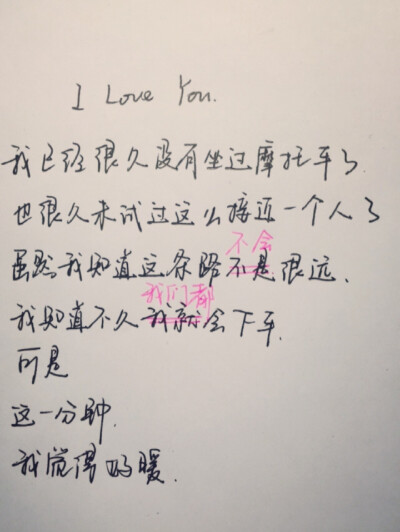 I Love You.
我已经很久没有坐过摩托车了.
也很久未试过这么接近一个人了
不会
虽然我知道这条路不是很远.
我们都
我知道不久我就会下车.
可是
这一分钟.
我觉得好暖.